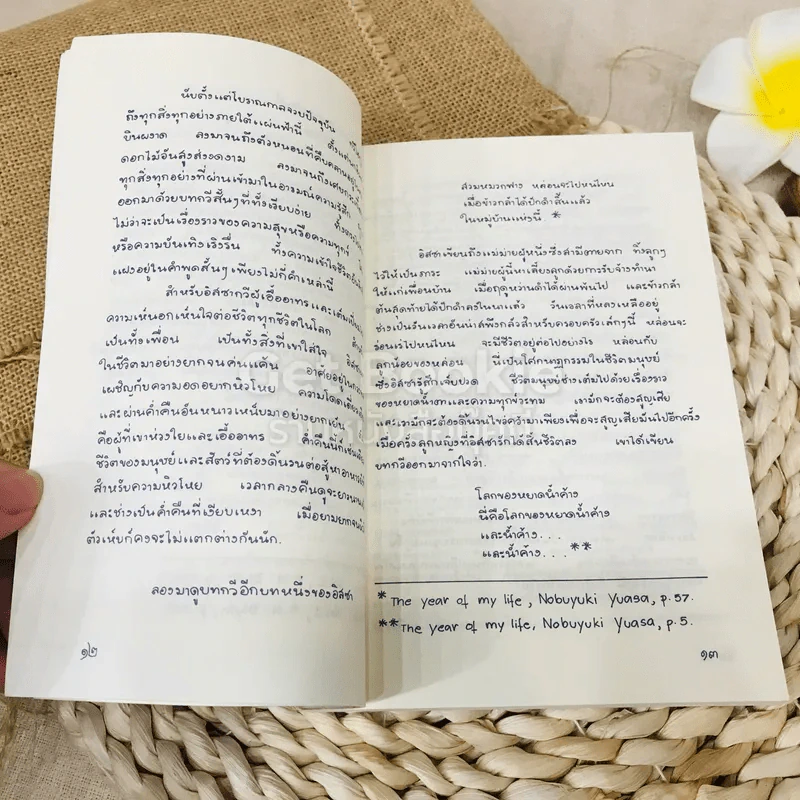 นับตั้งแต่โบราณกาลจวบปัจจุบัน
ถึงทุกสิ่งทุกอย่างภายใต้แผ่นฟ้านี้ ตั้งแต่
บินผงาด ลงมาจนถึงตัวหนอนที่คืบคลาน
ดอกไม้อันสูงส่งงดงาม ลงมาจนถึง
ทุกสิ่งทุกอย่างที่ผ่านเข้ามาในอารมณ์ความรู้สึก
ออกมาด้วยบทกวีสั้นๆที่ทั้งเรียบง่าย
ไม่ว่าจะเป็นเรื่องราวของความสุขหรือความทุกข์
หรือความบันเทิงเริงรื่น ทั้งความเข้าใจชีวิต
แฝงอยู่ในคำพูดสั้นๆเพียงไม่กี่คำเหล่านี้
สำหรับอิสซากวีผู้เอื้ออาทรและเต็มเปี่ยม
ความเห็นอกเห็นใจต่อชีวิตทุกชีวิตในโลก
เป็นทั้งเพื่อน เป็นทั้งสิ่งที่เขาใส่ใจ
ในชีวิตมาอย่างยากจนค่นแค้น อาศัยอยู่ใน
เผชิญกับความอดอยากหิวโหย ความโดดเดี่ยว
และผ่านค่ำคืนอันหนาวเหน็บมาอย่างยากเย็น
คือผู้ที่เขาห่วงใยและเอื้ออาทร ค่ำคืนนี้ก็เช่น
ชีวิตของมนุษย์และสัตว์ที่ต้องดิ้นรนต่อสู้หาอาหาร
สำหรับความหิวโหย เวลากลางคืนดูจะยาวนาน
และช่างเป็นค่ำคืนที่เงียบเหงา เมื่อยามยากจน
ตัวเห็บก็คงจะไม่แตกต่างกันนัก.
ลองมาดูบทกวีอีกบทหนึ่งของอิสซา
๑๒
สวมหมวกฟาง หล่อนจะไปหนไหน
เมื่อข้าวกล้าได้ปักดำสิ้นแล้ว
ในหมู่บ้านแห่งนี้. *
อิสซาเขียนถึงแม่ม่ายผู้หนึ่งซึ่งสามีตายจาก ทิ้งลูกๆ
ไว้ให้เป็นภาระ แม่ม่ายผู้นี้หาเลี้ยงลูกด้วยการรับจ้างทำนา
ให้แก่เพื่อนบ้าน เมื่อฤดูหว่านดำได้ผ่านพ้นไป และข้าวกล้า
ต้นสุดท้ายได้ปักดำลงในนาแล้ว วันเวลาที่หลงเหลืออยู่
ช่างเป็นวันเวลาอันน่าสะพึงกลัวสำหรับครอบครัวเล็กๆนี้ หล่อนจะ
ร่อนเร่ไปหนไหน จะมีชีวิตอยู่ต่อไปอย่างไร หล่อนกับ
ลูกน้อยของหล่อน นี่เป็นโศกนาฏกรรมในชีวิตมนุษย์
ซึ่งอิสซารู้สึกเจ็บปวด ชีวิตมนุษย์ช่างเต็มไปด้วยเรื่องราว
ของหยาดน้ำตาและความทุกข์ระทม เรามักจะต้องสูญเสีย
และเรามักจะต้องดิ้นรนไขว่คว้ามาเพียงเพื่อจะสูญเสียมันไปอีกครั้ง
เมื่อครั้งลูกหญิงที่อิสซารักได้สิ้นชีวิตลง เขาได้เขียน
บทกวีออกมาจากใจว่า.
โลกของหยาดน้ำค้าง
นี่คือโลกของหยาดน้ำค้าง
และน้ำค้าง...
และน้ำค้าง... **
* The year of my life, Nobuyuki Yuasa, p.57.
** The year of my life, Nobuyuki Yuasa, p.5.
๑๓